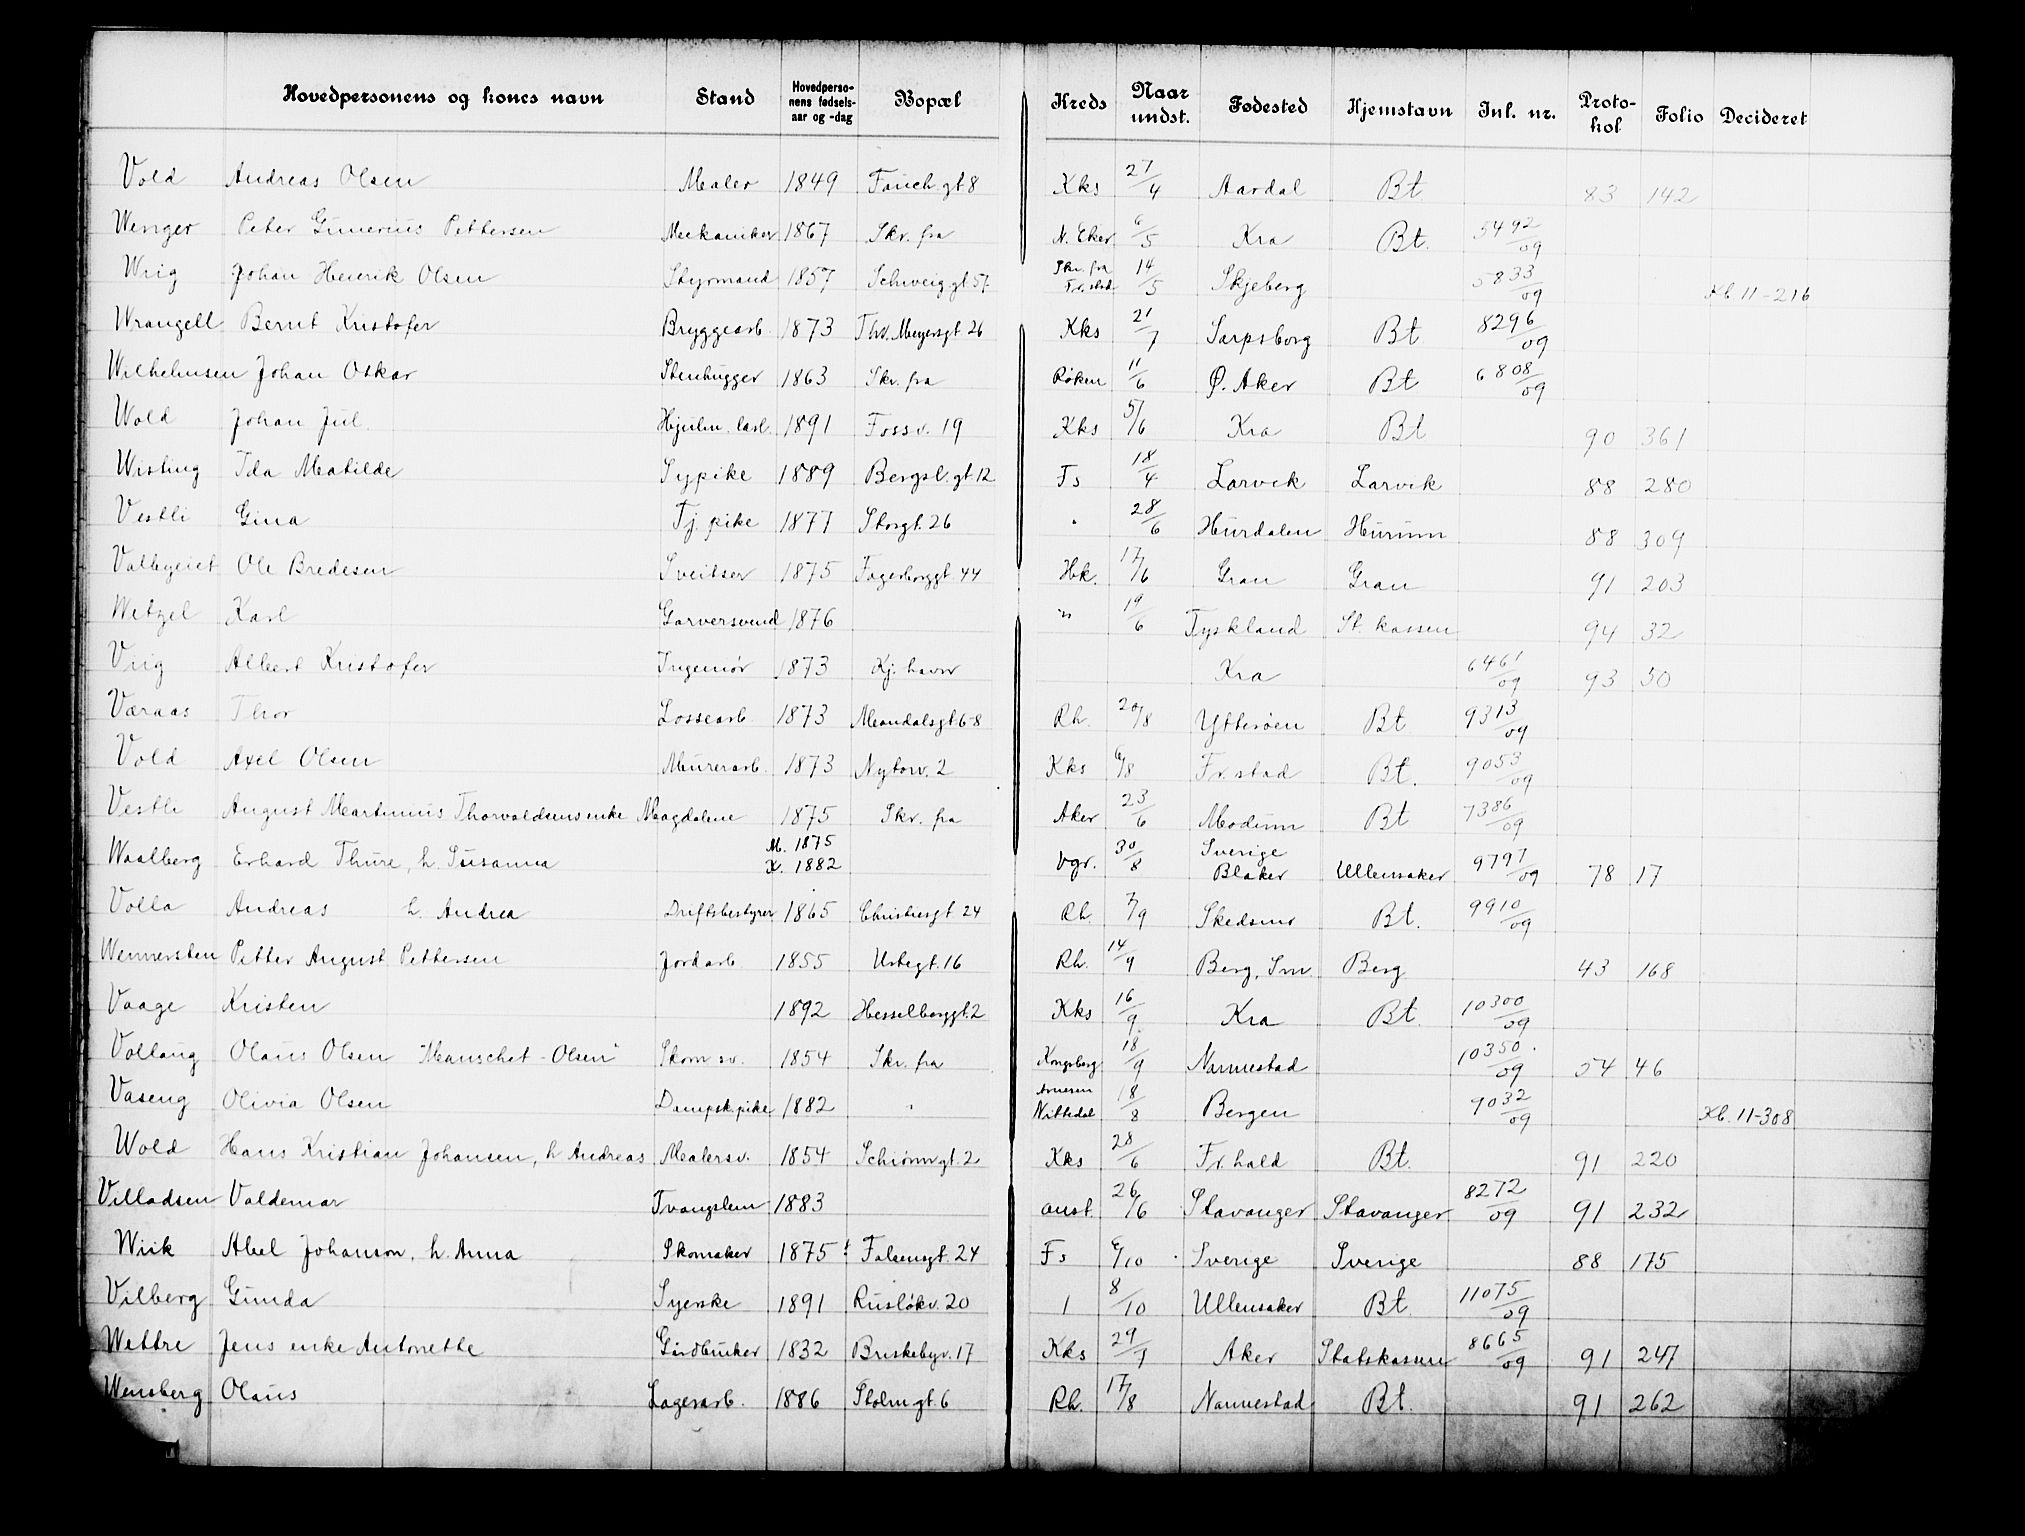 Hovedpersonens og kones navn Stand Hovedpersonens fødselsaar og -dag Bopæl Kreds Naar undst. Fødested Hjemstavn Inl. nr. Protokol Folio Decideret
Vold Andreas Olsen Maler 1849 Fauch.gt 8 Kks 27/4 Aardal Bt 83 142
Wenger Peter Gunerius Pettersen Mekaniker 1867 Skr. fra N. Eker 6/5 Kra Bt. 5492/09
Wiig Johan Henrik Olsen Styrmand 1857 Schweig.gt 57 Skr. fra Fr.stad 14/5 Skjeberg 5833/09 Kb 11-216
Wrangell Bernt Kristofer Bryggearb. 1873 Ths. Meyersgt 26 Kks 21/7 Sarpsborg Bt 8296/09
Wilhelmsen Johan Oskar Stenhugger 1863 Skr. fra Røken 11/6 Ø. Aker Bt 6808/09
Wold Johan Jul. Hjulm. lærl. 1891 Fossv. 19 Kks 5/6 Kra Bt 90 361
Wisting Ida Matilde Sypike 1889 Bergsl.gt 12 Fs 18/4 Larvik Larvik 88 280
Vestli Gina Tj. pike 1877 Storgt. 26 " 28/6 Hurdalen Hurum 88 309
Valbyeiet Ole Bredesen Sveitser 1875 Fagerborggt. 44 Hk. 17/6 Gran Gran 91 203
Wetzel Karl Garversvend 1876 " 19/6 Tyskland St. kassen 94 32
Viig Albert Kristofer Ingeniør 1873 Kj. havn Kra 6461/09 93 50
Væraas Thor Lossearb 1873 Mandalsgt 6-8 Rh. 20/8 Ytterøen Bt 9313/09
Vold Axel Olsen Murerarb. 1873 Nytorv. 2 Kks 6/8 Fr.stad Bt. 9053/09
Vestli August Martinius Thorvaldsens enke Magdalene 1875 Skr. fra Aker 23/6 Modum Bt 7386/09
Waalberg Erhard Thure, h. Susanna M. 1875 K. 1882 Vgr. 30/8 Sverige Blaker Ullensaker 9797/09 78 17
Volla Andreas h. Andrea Driftsbestyrer 1865 Christiesgt. 24 Rh. 7/9 Skedsmo Bt. 9910/09
Wennersten Petter August Pettersen Jordarb 1855 Urtegt. 16 Rh. 14/9 Berg, Sm. Berg 43 168
Vaage Kristen 1892 Hesselberggt. 2 Kks 16/9 Kra Bt. 10300/09
Vollaug Olaus Olsen "Manschet-Olsen" Skom.sv. 1854 Skr. fra Kongsberg 18/9 Nannestad 10350/09 54 46
Vaseng Olivia Olsen Dampsk.pike 1882 " Nittedal 18/8 Bergen 9032/09 Kb. 11-308
Wold Hans Kristian Johansen, h Andreas Malersv. 1854 Schiønn.gt. 2 Kks 28/6 Fr. hald Bt. 91 220
Villadsen Valdemar Tvangslem 1883 anst. 26/6 Stavanger Stavanger 8272/09 91 232
Wiik Abel Johanson, h. Anna Skomaker 1875 Falsensgt. 24 Fs 6/10 Sverige Sverige 88 175
Vilberg Gunda Syerske 1891 Rusløkv. 20 1 8/10 Ullensaker Bt. 11075/09
Wettre Jens enke Antonette Grdbruker 1832 Briskebyv. 17 Kks 29/7 Aker Statskassen 8665/09 91 247
Wensberg Olaus Lagerarb. 1886 Stolmgt. 6 Rh. 17/8 Nannestad Bt. 91 262